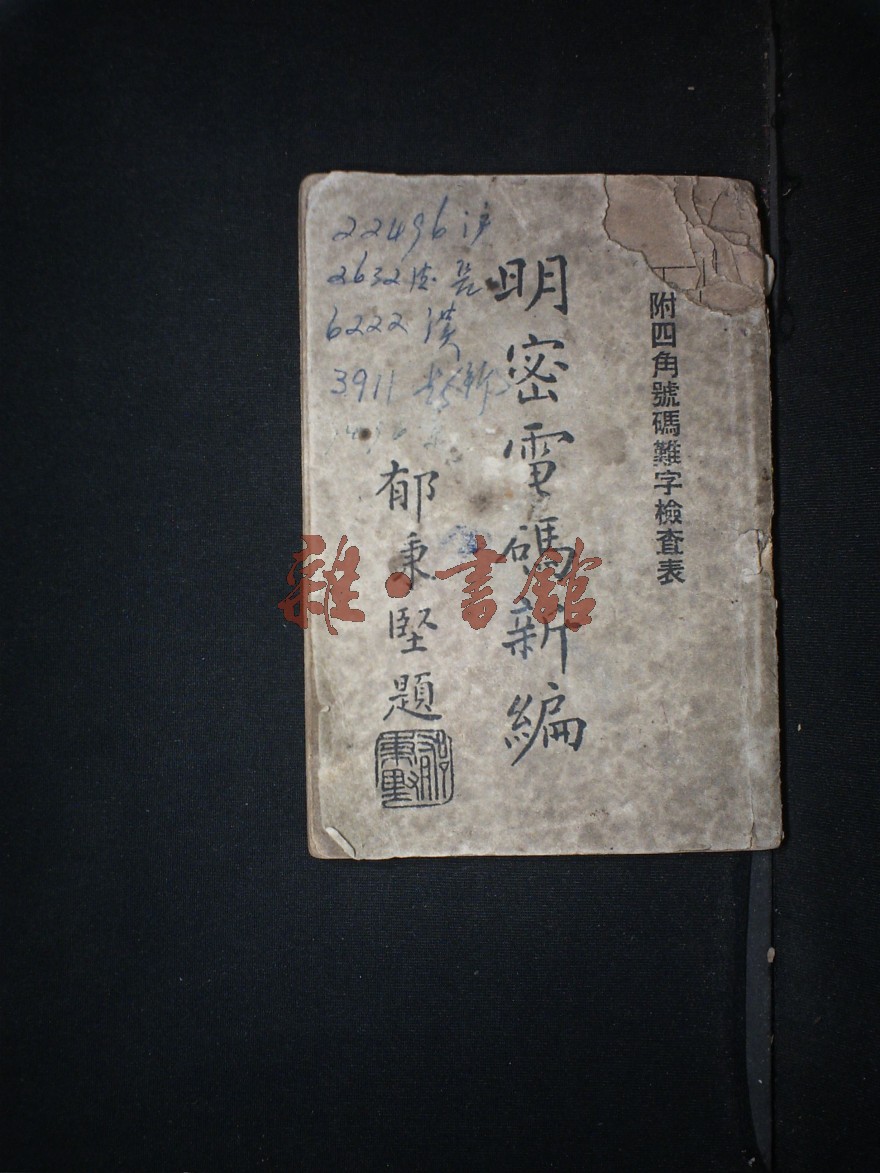 附四角號碼難字檢查表
明密電碼新編
郁秉堅題
22496 沪
2632
6222 漢
3911
雜·書館